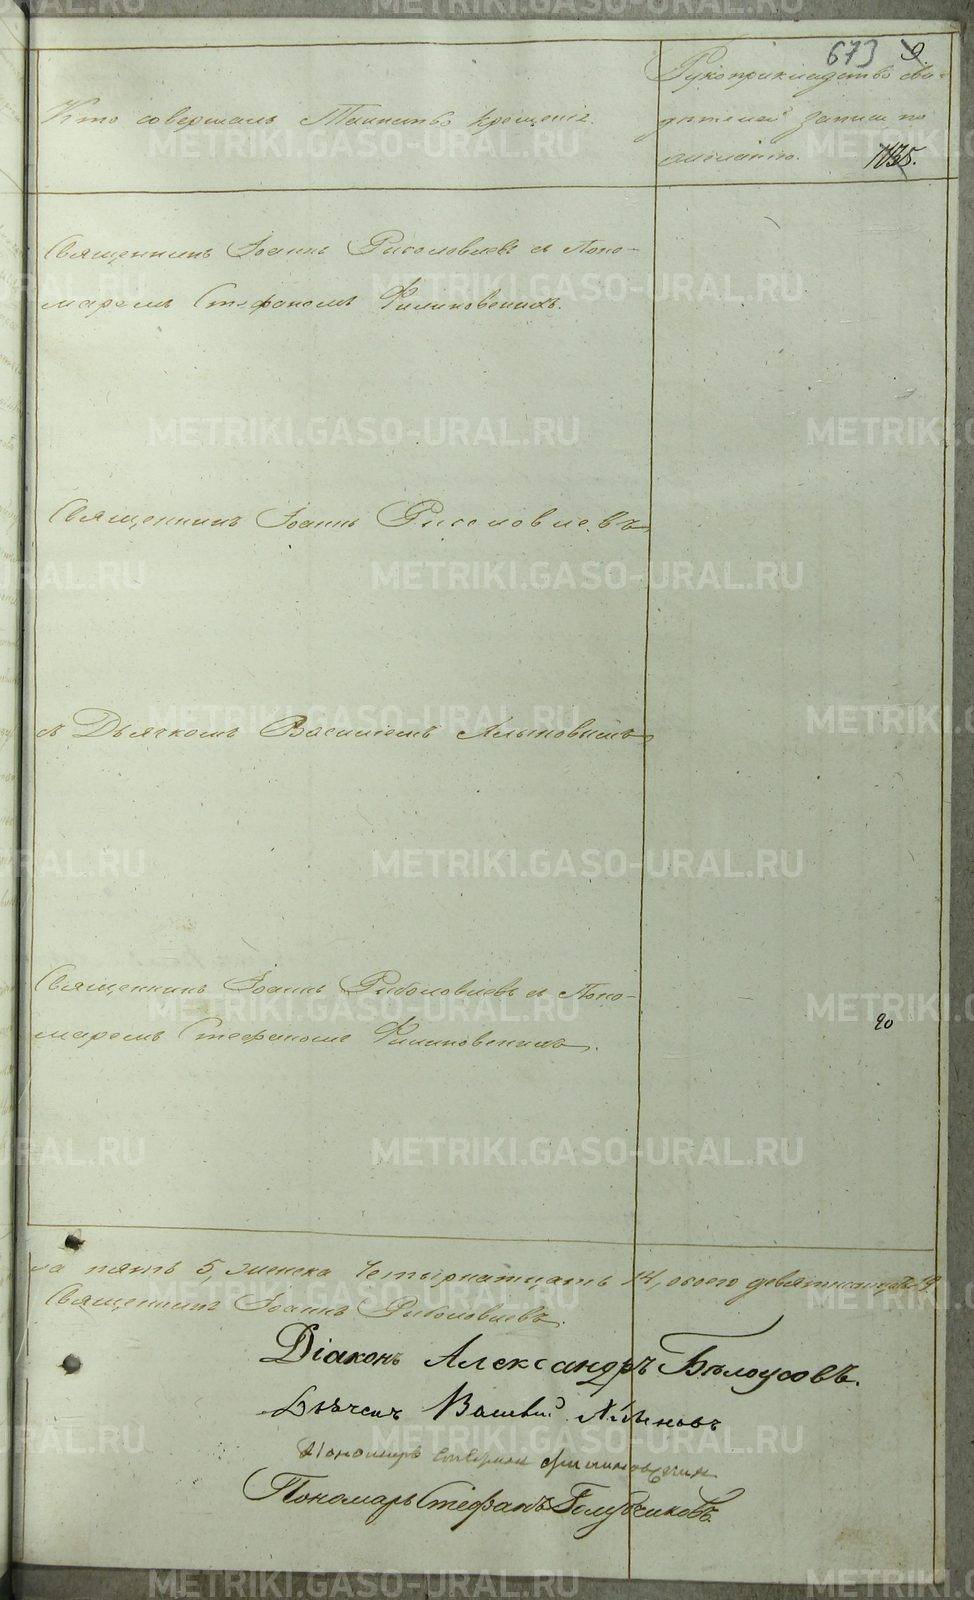 673 9.
Кто совершалъ Таинство крещенія.
Рукоприкладство сви-
дѣтелей записи по
желанію.
1135.
Священникъ Іоаннъ Рыболовлевъ съ Поно-
маремъ Стефаномъ Филиповскимъ.
Священникъ Іоаннъ Рыболовлевъ
съ Дьячкомъ Василіемъ
Священникъ Іоаннъ Рыболовлевъ съ Поно-
маремъ Стефаномъ Филиповскимъ.
20
пять 5, женска четырнатцать 14, обоего девятнатцать 19
Священникъ Іоаннъ Рыболовлевъ.
Діаконъ Александръ Бѣлоусовъ.
Дьячекъ Василій
Пономарь Стефанъ
Пономарь Стефанъ Голубчиковъ.
METRIKI.GASO-URAL.RU